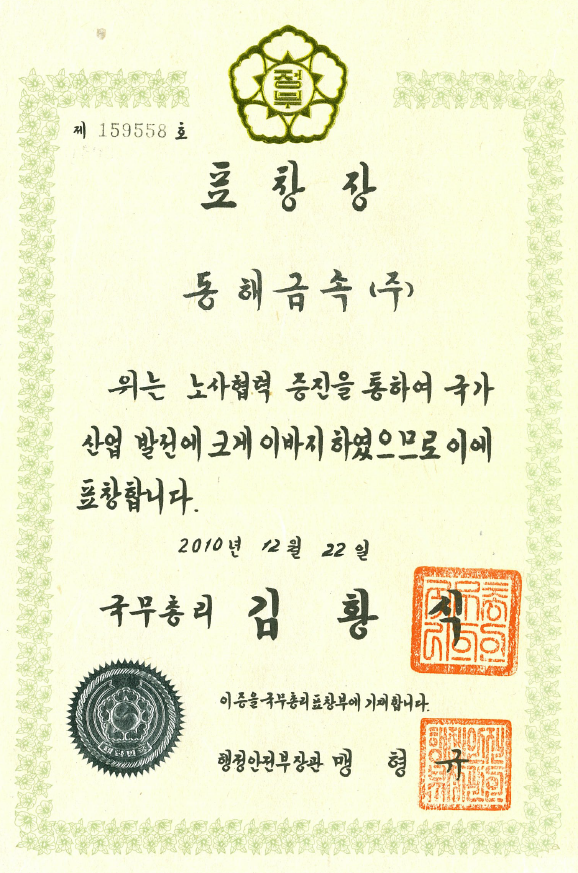 정부
제 159558 호
표창장
동해금속(주)
위는 노사협력 증진을 통하여 국가
산업 발전에 크게 이바지하였으므로 이에
표창합니다.
2010년 12월 22일
국무총리 김황식
이 증을 국무총리표창부에 기재합니다.
행정안전부장관 맹형규